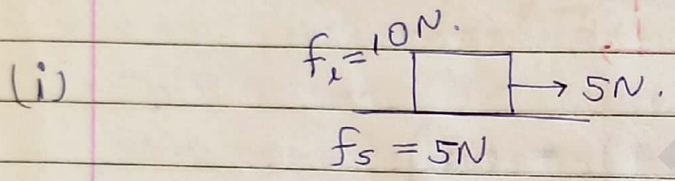 f_l = 10N.
(i) → 5N.
f_s = 5N